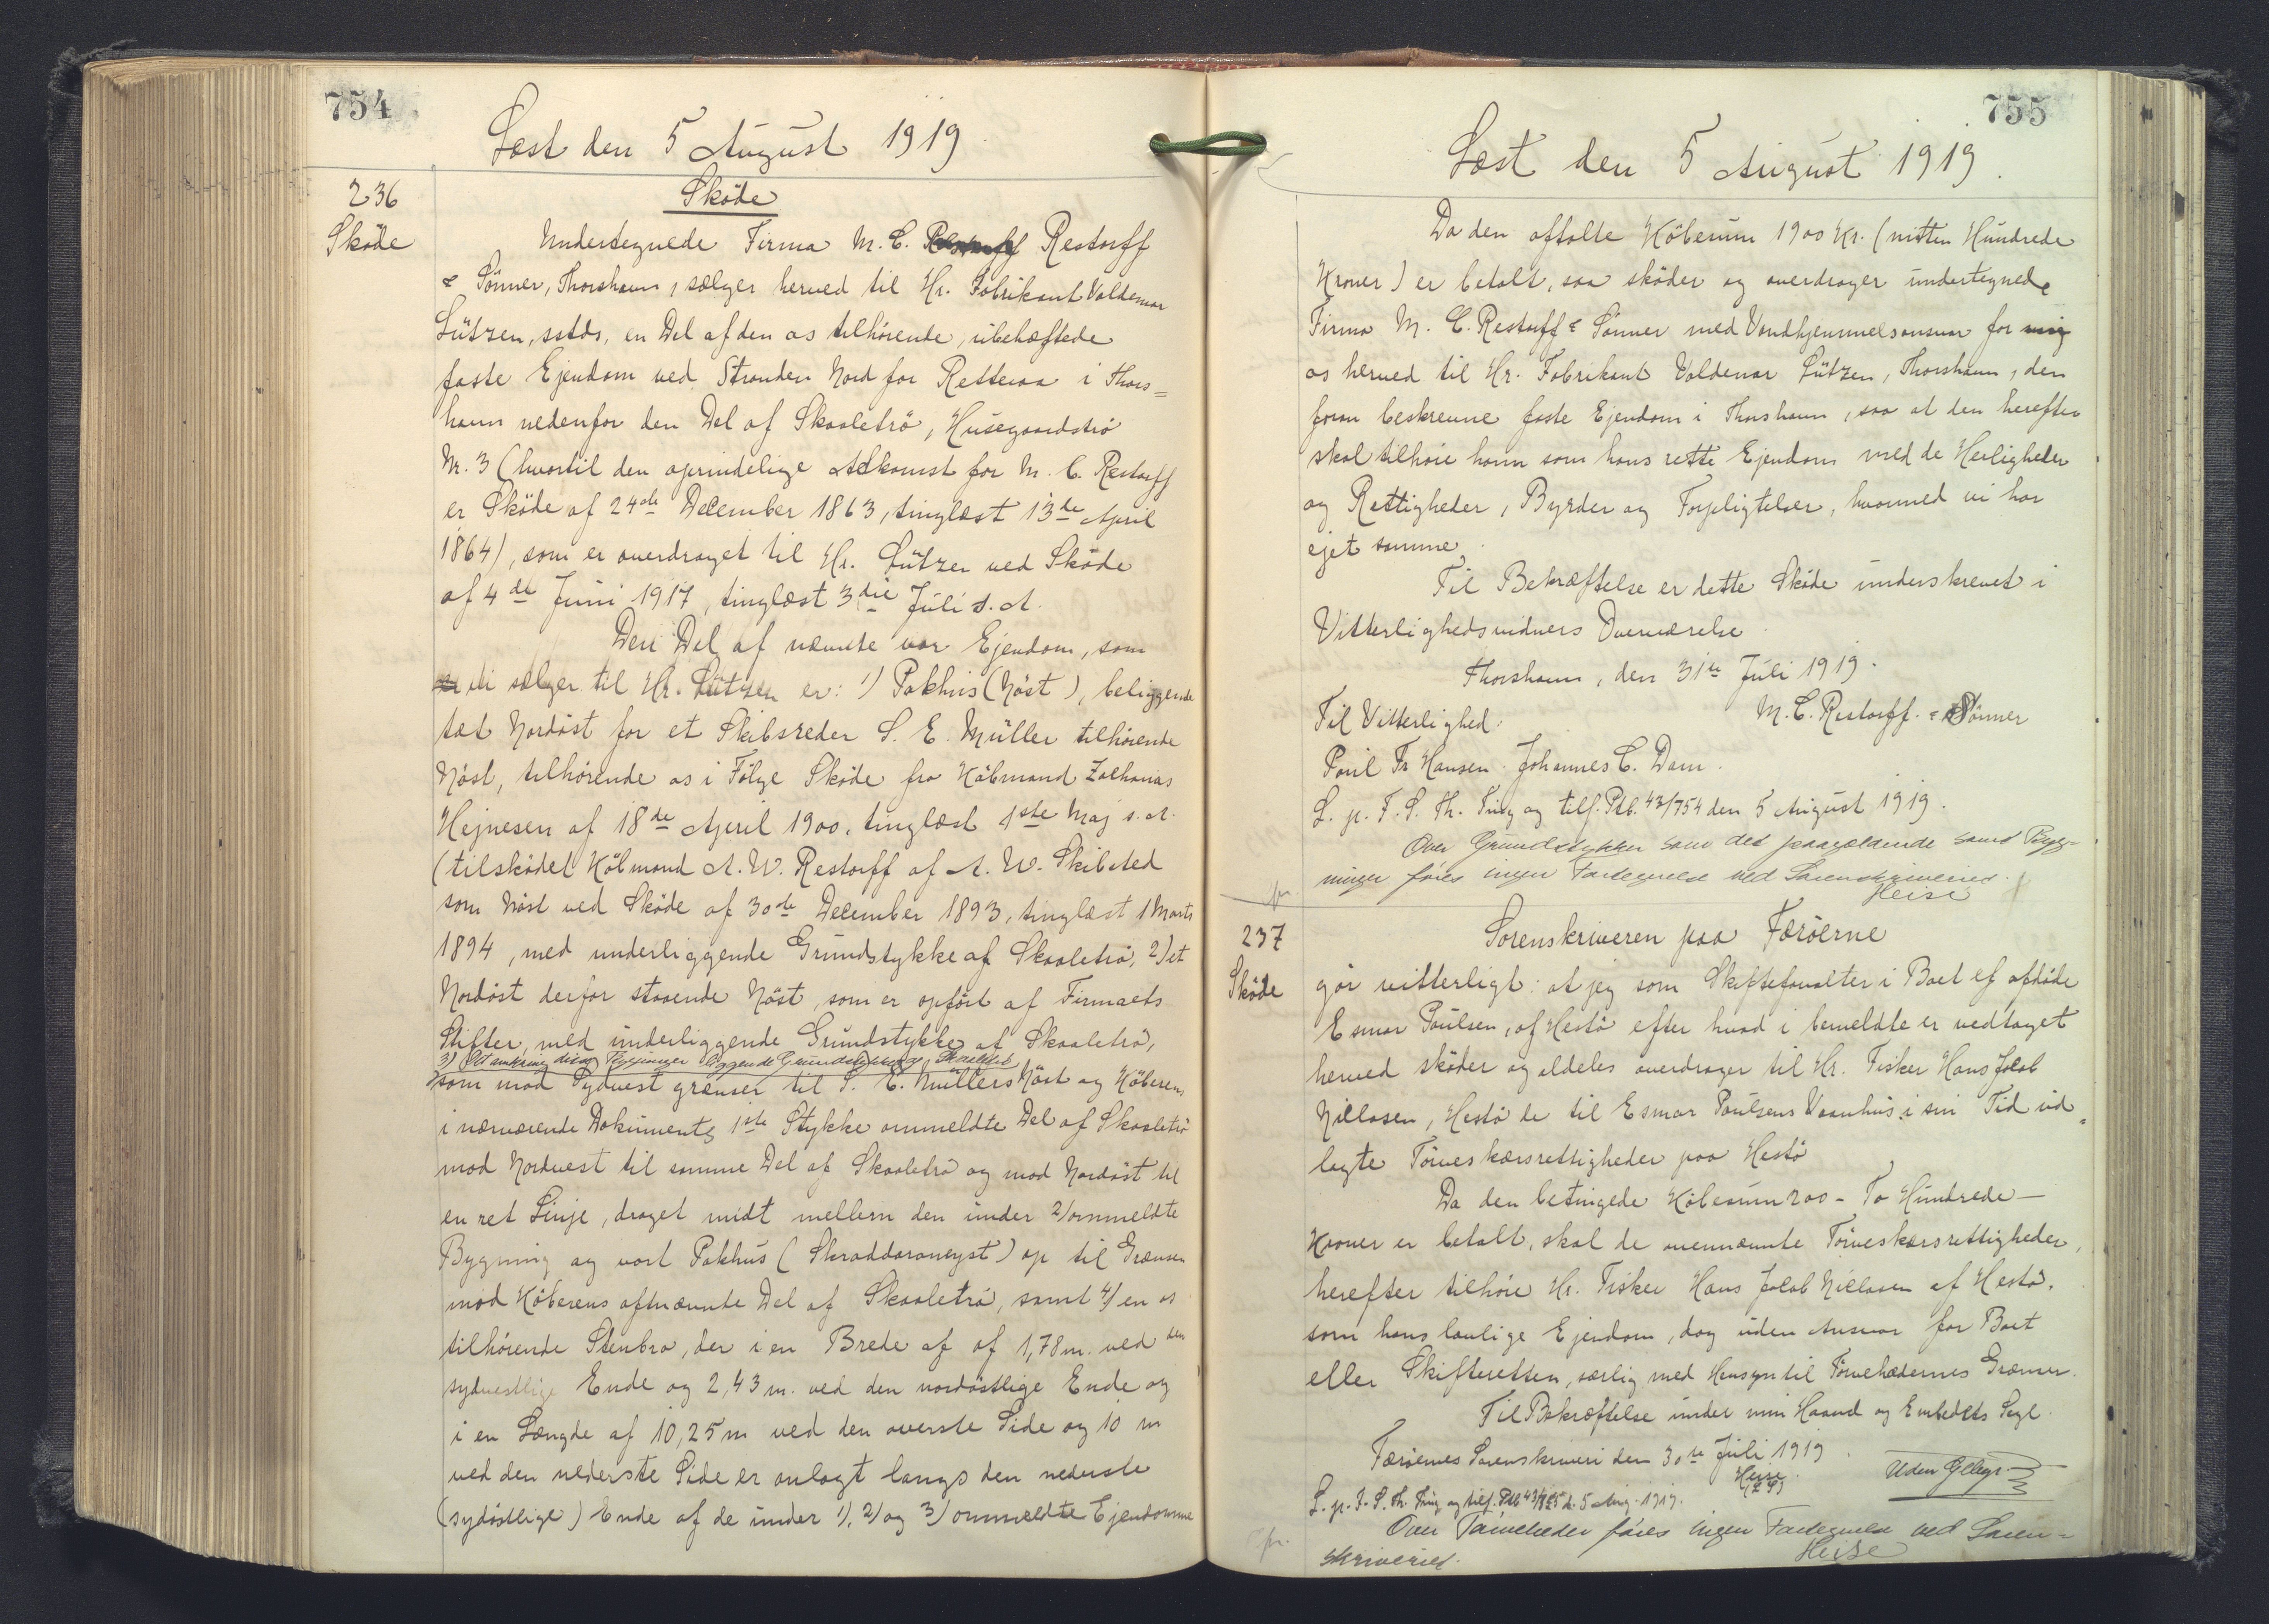 754
Læst den 5 August 1919
236
Sköde
Sköde
Undertegnede Firma M. C. Restorff
& Sönner, Thorshavn, sælger herved til Hr. Fabrikant Valdemar
Lützen, sstds, en Del af den os tilhörende, ubehæftede
faste Ejendom ved Stranden Nord for Retteraa i Thors=
havn nedenfor den Del af Skaaletrö, Husegaardströ
Nr. 3 (hvortil den oprindelige Adkomst for M. C. Restorff
er Sköde af 24de December 1863, tinglæst 13de April
1864), som er overdraget til Hr. Lützen ved Sköde
af 4de Juni 1917, tinglæst 3die Juli s. A.
Den Del af nævnte vor Ejendom, som
vi sælger til Hr. Lützen er: 1) Pakhus (Nöst), beliggende
tæt Nordöst for et Skibsreder S. E. Müller tilhörende
Nöst, tilhörende os i Fölge Sköde fra Köbmand Zacharias
Hejnesen af 18de April 1900, tinglæst 1ste Maj s. A.
(tilsködet Köbmand A. W. Restorff af A. W. Skibsted
som Nöst ved Sköde af 30te December 1893, tinglæst 1 Marts
1894, med underliggende Grundstykke af Skaaletrö, 2) et
Nordöst derfor staaende Nöst, som er opfört af Firmaets
Stifter, med underliggende Grundstykke af Skaaletrö,
3) Det omkring disse Bygninger liggende Grundstykke af Skaaletrö
som mod Sydvest grænser til S. E. Müllers Nöst og Köberens
i nærværende Dokuments 1ste Stykke ommeldte Del af Skaaletrö
mod Nordvest til samme Del af Skaaletrö og mod Nordöst til
en ret Linje, draget midt mellem den under 2) ommeldte
Bygning og vort Pakhus (Skraddaraneyst) op til Grænsen
mod Köberens oftnævnte Del af Skaaletrö, samt 4) en os
tilhörende Stenbro, der i en Brede af af 1,78 m. ved den
sydvestlige Ende og 2,43 m. ved den nordöstlige Ende og
i en Længde af 10,25 m ved den överste Side og 10 m
ved den nederste Side er anlagt langs den nederste
(sydöstlige) Ende af de under 1), 2) og 3) ommeldte Ejendomme
755
Læst den 5 August 1919.
Da den aftalte Köbesum 1900 Kr. (nitten Hundrede
Kroner) er betalt, saa sköder og overdrager undertegnede
Firma M. C. Restorff & Sönner med Vandhjemmelsansvar for mig
os herved til Hr. Fabrikant Valdemar Lützen, Thorshavn, den
foran beskrevne faste Ejendom i Thorshavn, saa at den herefter
skal tilhöre ham som hans rette Ejendom med de Herligheder
og Rettigheder, Byrder og Forpligtelser, hvormed vi har
ejet samme.
Til Bekræftelse er dette Sköde underskrevet i
Vitterlighedsvidners Overværelse.
Thorshavn, den 31te Juli 1919.
M. C. Restorff & Sönner
Til Vitterlighed:
Poul Fr Hansen. Johannes C. Dam.
L. p. F. S. Th. Ting og tilf. Ptb. 43/754 den 5 August 1919.
Over Grundstykker som det paagældende samt Byg-
ninger föres ingen Fortegnelse ved Sorenskriveriet.
Heise
237
Sköde
Sorenskriveren paa Færöerne
gör vitterligt: at jeg som Skifteforvalter i Boet ef afdöde
Esmar Poulsen, af Hestö efter hvad i bemeldte er vedtaget
herved sköder og aldeles overdrager til Hr. Fisker Hans Jacob
Niclasen, Hestö de til Esmar Poulsens Vaanhus i sin Tid ud=
lagte Törveskærsrettigheder paa Hestö
Da den betingede Köbesum 200 - To Hundrede -
Kroner er betalt, skal de ovennævnte Törveskærsrettigheder,
herefter tilhöre Hr. Fisker Hans Jacob Niclasen af Hestö.
som hans lovlige Ejendom, dog uden Ansvar for Boet
eller Skifteretten, særlig med Hensyn til Törvehædernes Grænser.
Til Bekræftelse under min Haand og Embedets Segl.
Færöernes Sorenskriveri den 30te Juli 1919.
Heise.
(L. S.)
Uden Gebyr.
L. p. F. S. Th. Ting og tilf. Ptb 43/755 d. 5 Aug. 1919.
Over Törvehæder föres ingen Fortegnelse ved Soren=
skriveriet.
Heise